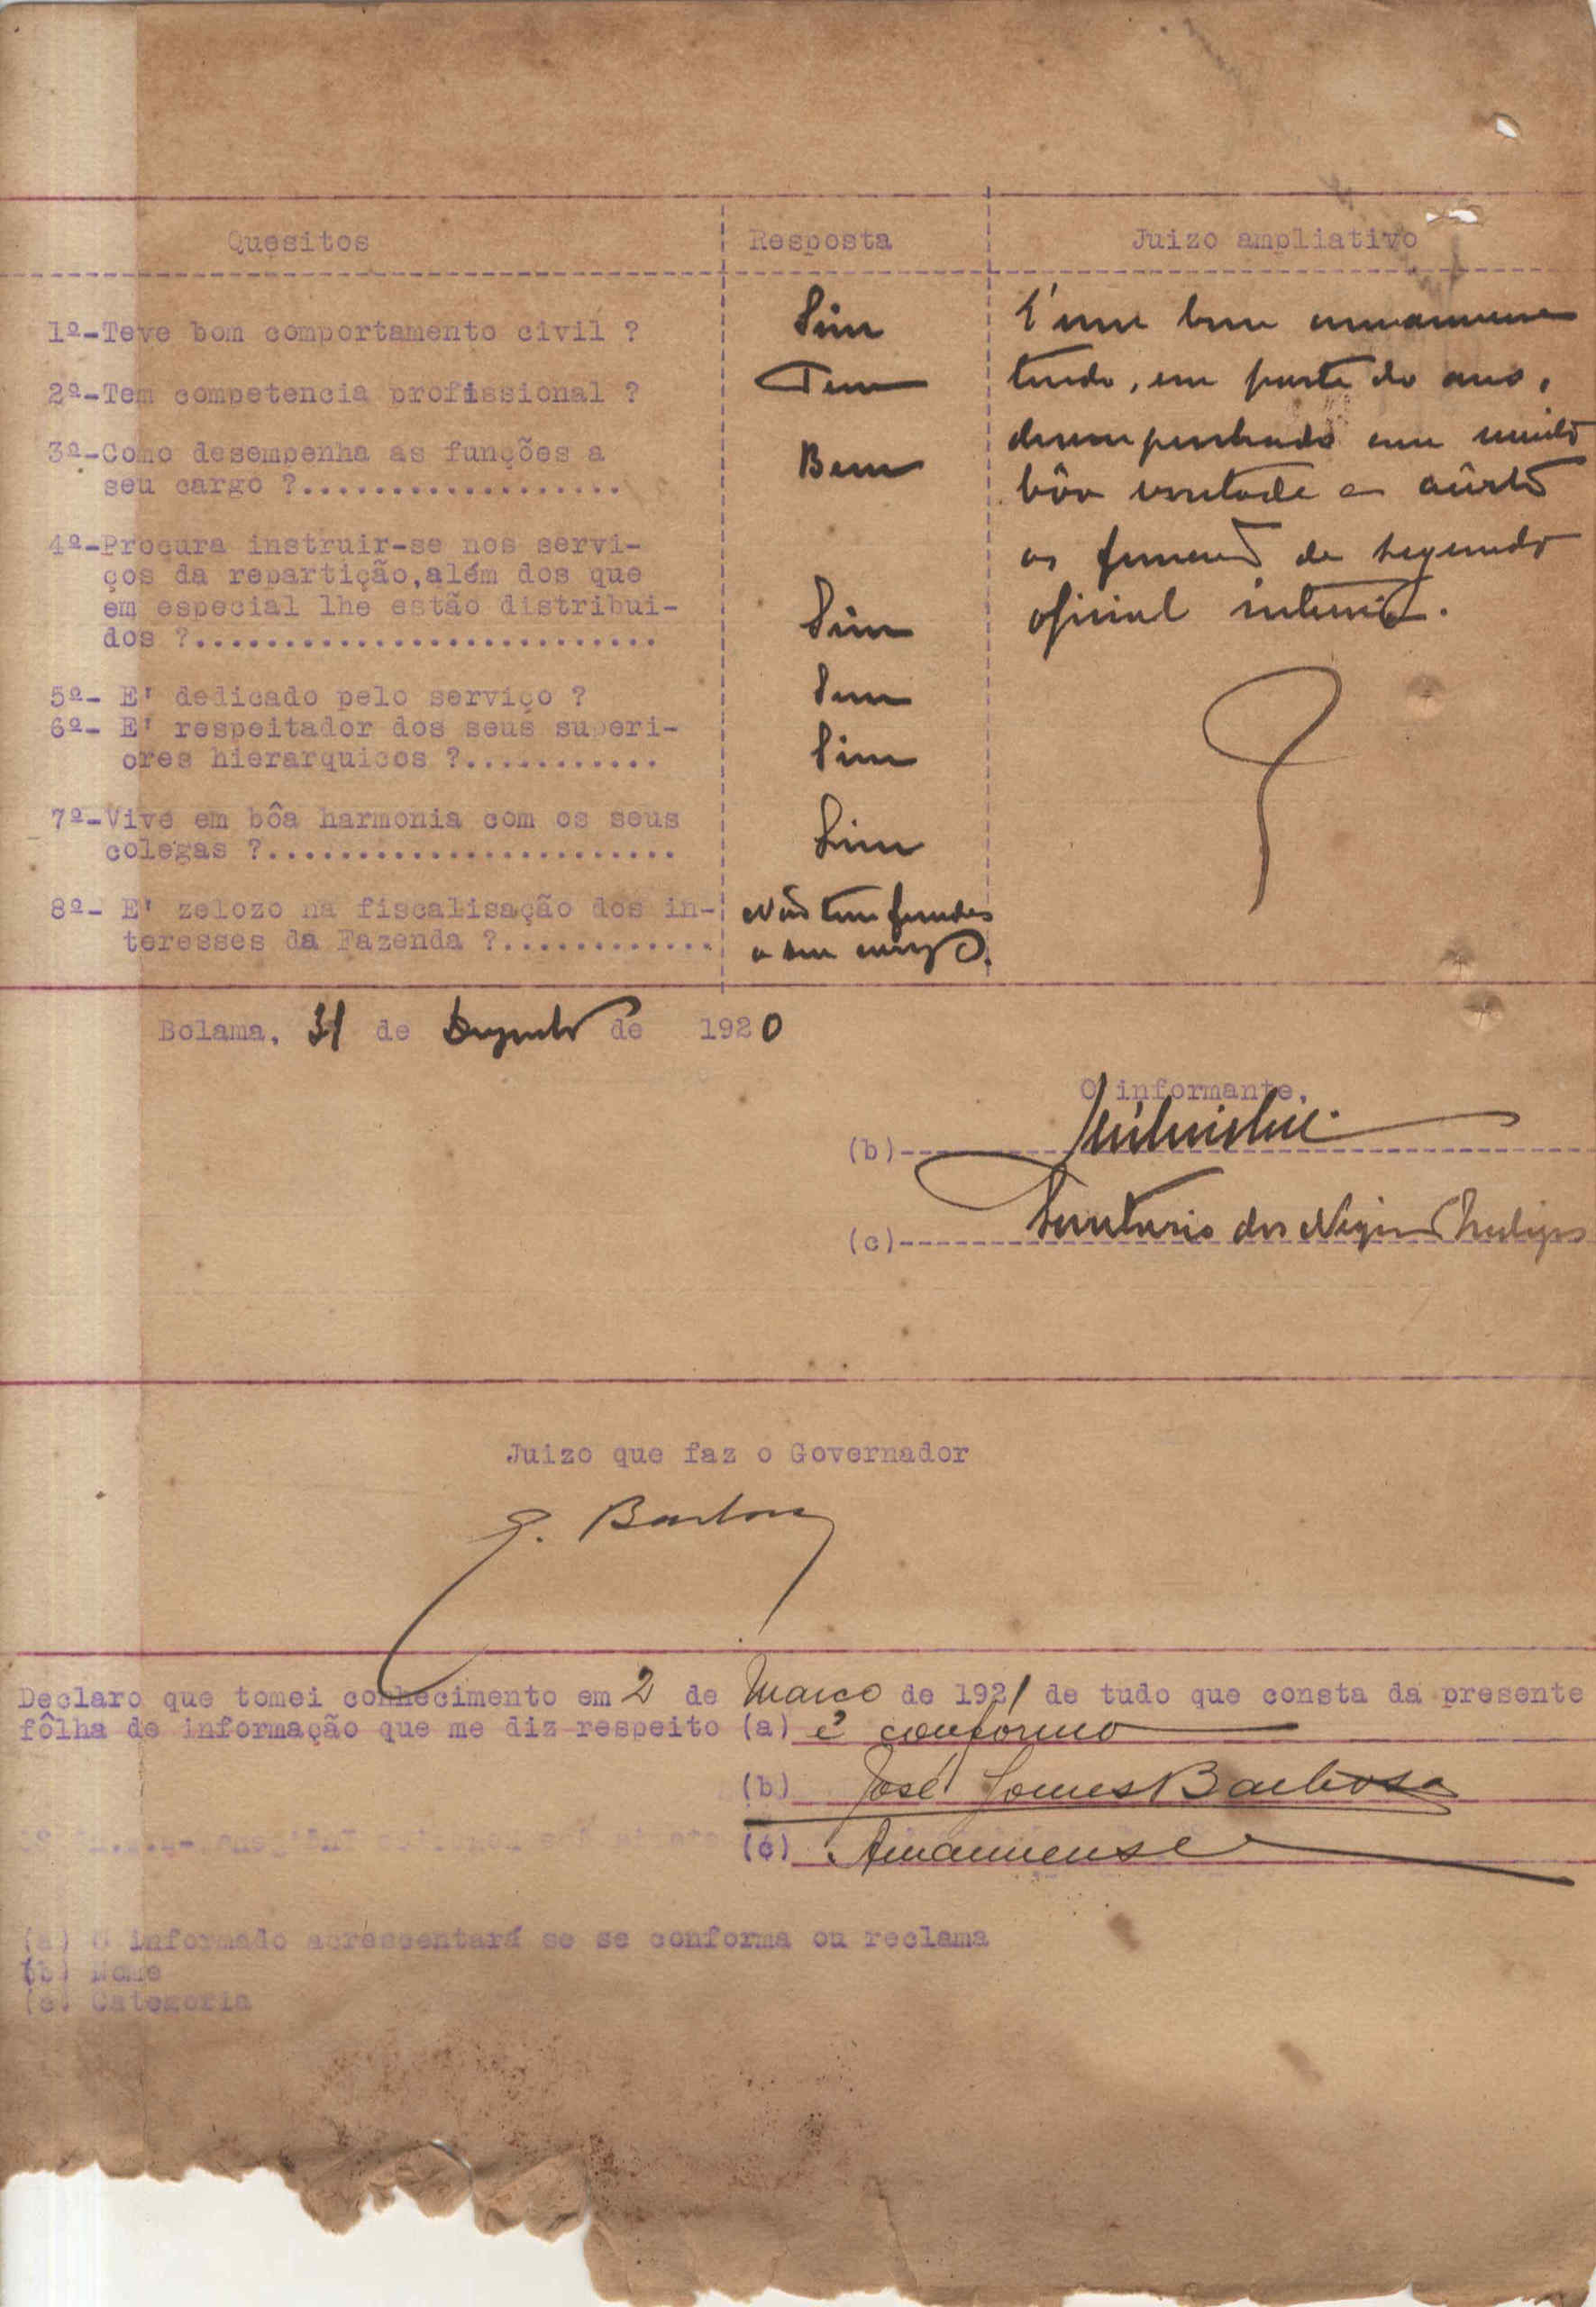 Quesitos Resposta Juizo ampliativo
1º-Teve bom comportamento civil ? Sim
2º-Tem competencia profissional ? Tem
3º-Como desempenha as funções a
seu cargo ?.................. Bem
4º-Procura instruir-se nos servi-
ços da repartição,além dos que
em especial lhe estão distribui-
dos ?.......................... Sim
5º- E' dedicado pelo serviço ? Sim
6º- E' respeitador dos seus superi-
ores hierarquicos ?........... Sim
7º-Vive em bôa harmonia com os seus
colegas ?....................... Sim
8º- E' zelozo na fiscalisação dos in-
teresses da Fazenda ?............
Não tem fundos
a seu cargo.
É um bom amanuense
tendo, em parte do ano,
desempenhado com muito
bôa vontade e acêrto
as funções de segundo
oficial interino.
Bolama, 31 de Dezembro de 1920
O informante,
(b)
(c) Secretario dos Negocios
Juizo que faz o Governador
Declaro que tomei conhecimento em 2 de Março de 1921 de tudo que consta da presente
fôlha de informação que me diz respeito (a) é confórme
(b) José Gomes Barbosa
(c) Amanuense
(a) O informado acrescentará se se conforma ou reclama
(b) Nome
(c) Categoria